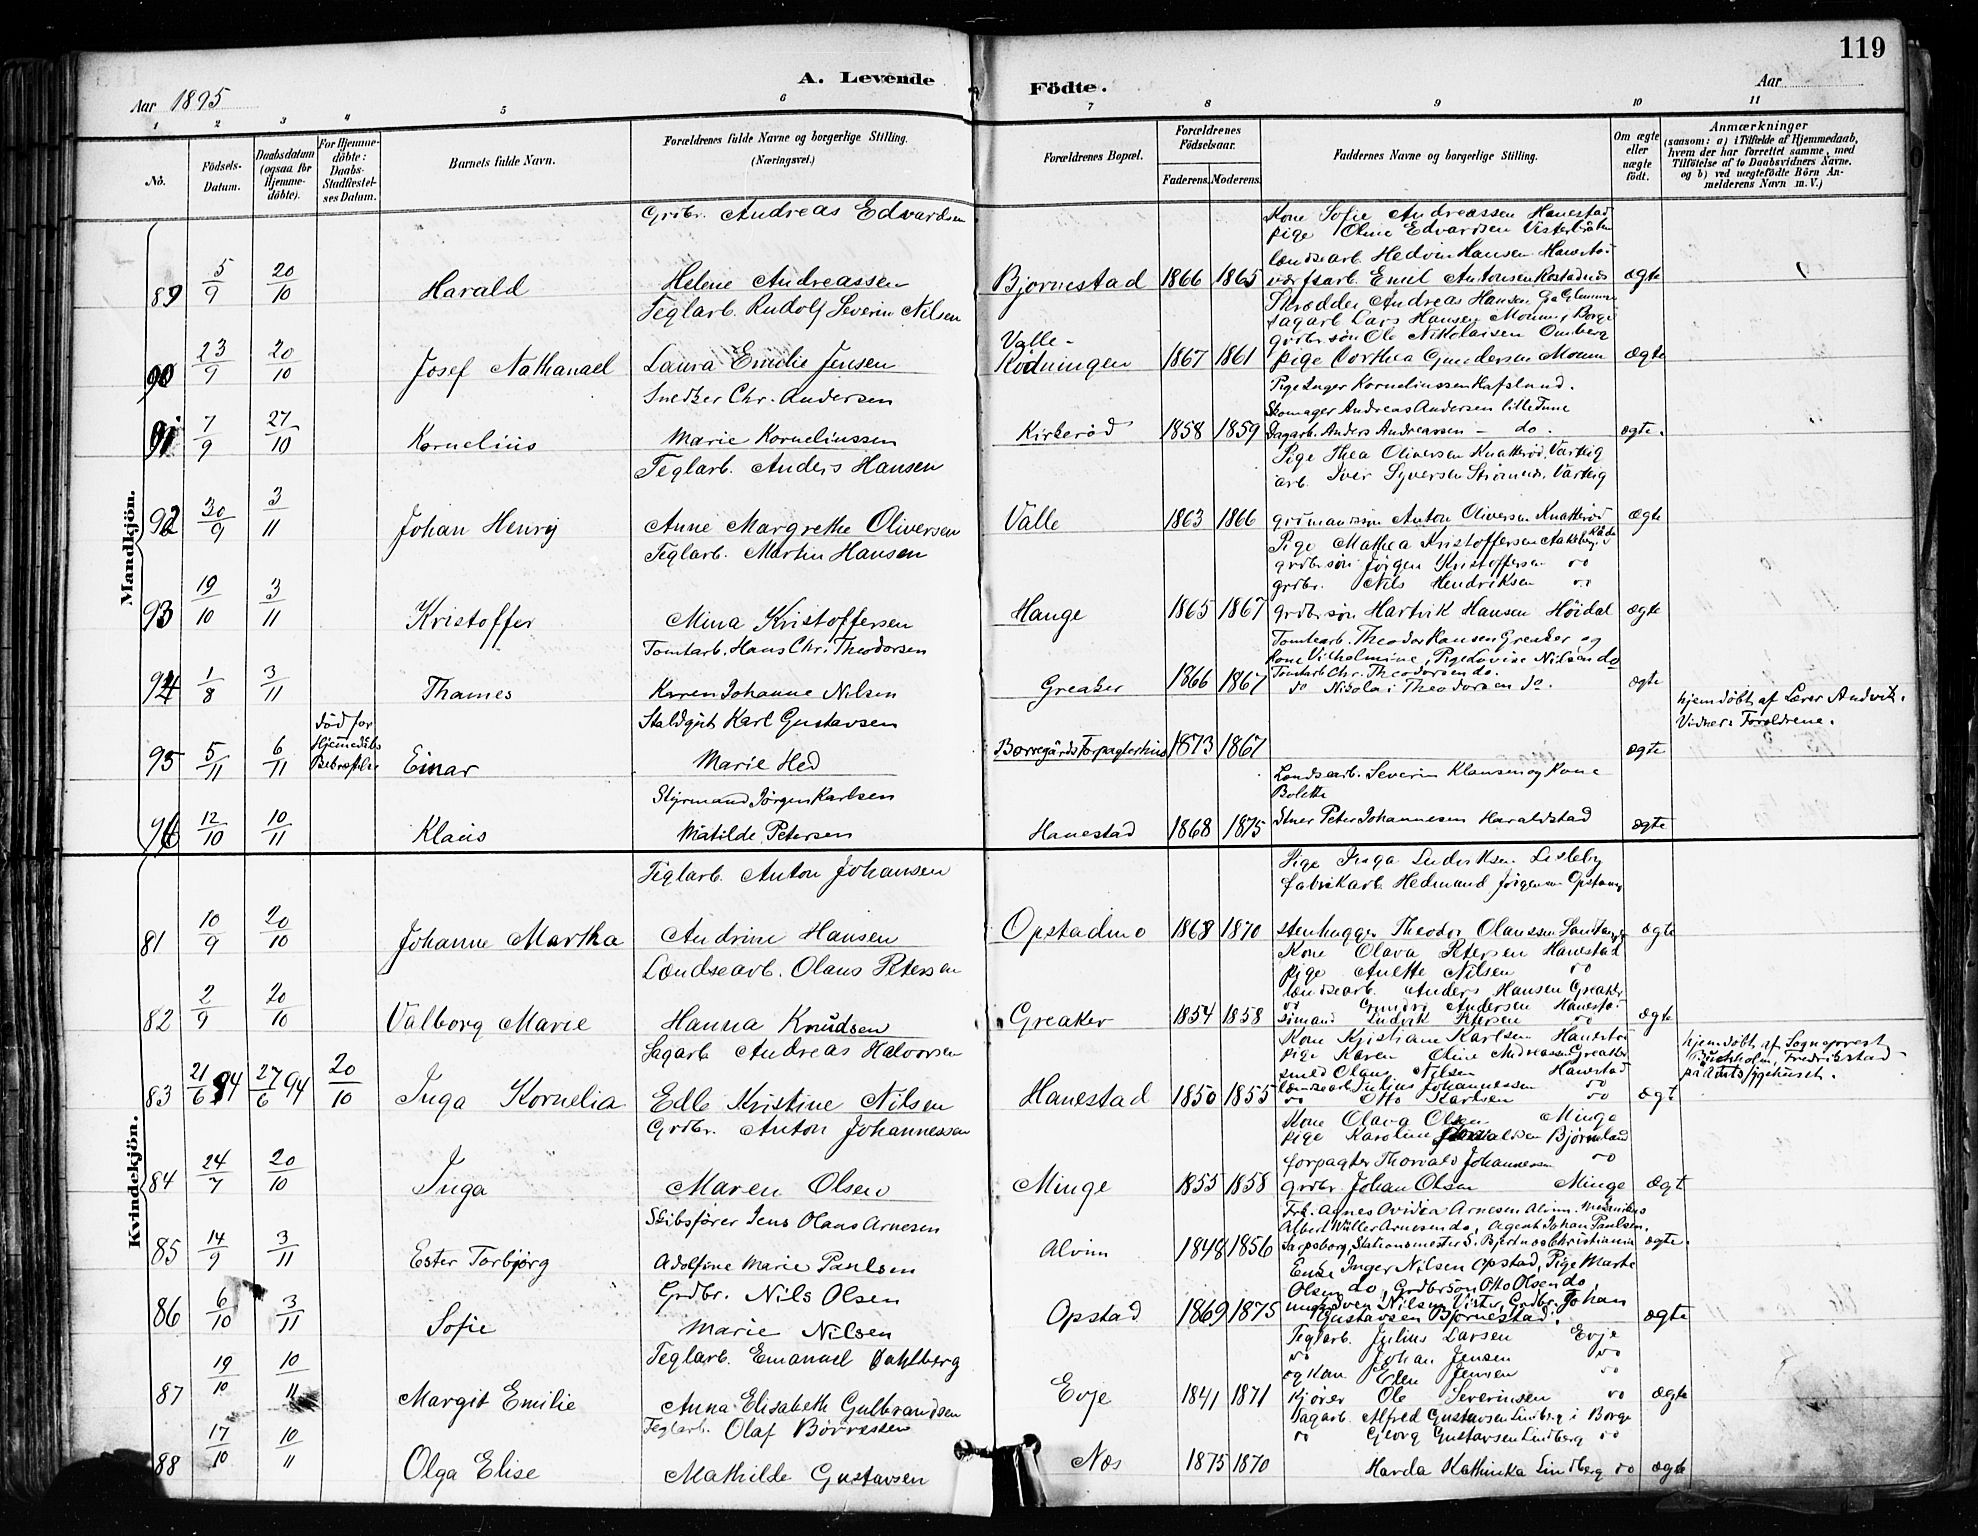 119
A. Levende Födte.
Aar 1895
Aar
1 2 3 4 5 6 7 8 9 10 11
No.
Födsels-Datum.
Daabsdatum (ogsaa for Hjemmedöbte).
For Hjemmedöbte: Daabs-Stadfæstelses Datum.
Barnets fulde Navn.
Forældrenes fulde Navne og borgerlige Stilling. (Næringsvei.)
Forældrenes Bopæl.
Forældrenes Födselsaar.
Faderens. Moderens.
Faddernes Navne og borgerlige Stilling.
Om ægte eller uægte födt.
Anmærkninger (saasom: a) i Tilfælde af Hjemmedaab, hvem der har forrettet samme, med Tilföielse af to Daabsvidners Navne. og b) ved uægtefödte Börn Anmelderens Navn m. V.)
Mandkjön.
Grdbr. Andreas Edvardsen
Kone Sofie Andreassen Hanestad
pige Oline Edvardsen Visterbråten
landsearb. Hedvin Hansen Hanestad
89 5/9 20/10 Harald Helene Andreassen Bjornestad 1866 1865 værftsarb. Emil Antonsen ægte
Teglarb. Rudolf Severin Nilsen
Skrædder Andreas Hansen Glemminge
Sagarb Lars Hansen Moum, Borge
Valle-
grdbr søn Ole Nikolaisen Omberg
90 23/9 20/10 Josef Nathanael Laura Emilie Jensen Rödningen 1867 1861 pige Dorthea Gundersen Moum ægte
Snedker Chr. Andersen
Pige Inger Korneliussen Hafslund.
Skomager Andreas Andersen lille Tune
91 7/9 27/10 Kornelius Marie Korneliussen Kirkeröd 1858 1859 Dagarb. Anders Andreassen - do. ægte.
Teglarb. Anders Hansen
Pige Thea Oliversen Knatteröd, Varteig
arb. Iver Syversen Strömnes, Varteig
92 30/9 3/11 Johan Henry Anne Margrethe Oliversen Valle 1863 1866 grdmandssøn Anton Oliversen Knatteröd ægte
Teglarb. Martin Hansen
Pige Mathea Kristoffersen Aakeberg, Råde
grdbr søn Jörgen Kristoffersen do
grdbr. Nils Hendriksen do
93 19/10 3/11 Kristoffer Mina Kristoffersen Hauge 1865 1867 grdbr søn Hartvik Hansen Höidal ægte
Tomtarb. Hans Chr. Theodorsen
Tomtearb. Theodor Hansen Greaker og
kone Vilhelmine, Pige Lovise Nilsen do
Tomtarb Chr. Theodorsen do.
94 1/8 3/11 Thames Karen Johanne Nilsen Greaker 1866 1867 do Nikolai Theodorsen do. ægte
død før Hjemedåbs Bekræftelse
Staldgut Karl Gustavsen
hjemdöbt af Lærer Andvik.
Vidner: Forældrene.
95 5/11 6/11 Einar Marie Hed Borregårds Forpagterhus 1873 1867 ægte
Styrmand Jörgen Karlsen
Landsearb. Severin Klausen og Kone
Bolette
96 12/10 10/11 Klaus Matilde Petersen Hanestad 1868 1875 Peter Johannesen Haraldstad ægte
Kvindekjön.
Teglarb. Anton Johansen
Pige Inga Ludviksen Lisleby
fabrikarb Hedmand Jörgensen Opstad
81 10/9 20/10 Johanne Martha Andrine Hansen Opstadmo 1868 1870 stenhugger Theodor Olaussen ægte
Landsearb. Olaus Petersen
Kone Olava Petersen Hanestad
pige Anette Nilsen do
landsearb. Anders Hansen Greaker
do Andersen Hanestad
82 2/9 20/10 Valborg Marie Hanna Knudsen Greaker 1854 1858 sömand Ludvik Petersen do ægte
Sagarb Andreas Halvorsen
Kone Kristiane Karlsen Hanestad
pige Karen Oline Andreassen Greaker
smed Olaus Nilsen Hanestad
landsearb Julius Johannessen do
hjemdöbt af Sogneprest
Buchholm, Fredrikstad
på Amtssygehuset.
83 21/6 94 27/6 94 20/10 Inga Kornelia Edle Kristine Nilsen Hanestad 1850 1855 do Otto Karlsen do ægt
Grdbr. Anton Johannessen
Kone Olava Olsen Minge
pige Karoline Björnland
forpagter Thorvald Johannessen do
84 24/7 20/10 Inga Maren Olsen Minge 1855 1858 grdbr. Johan Olsen Minge ægt
Skibsförer Jens Olaus Arnesen
Frk. Agnes Ovidea Arnesen Alvim. Maskinist
Albert Waller Arnesen do, Agent Johan Paulsen,
85 14/9 3/11 Ester Torbjørg Adolfine Marie Paulsen Alvim 1848 1856 Sarpsborg, Stationsmester S. Bjerknes Christiania ægte.
Grdbr. Nils Olsen
Enke Inger Nilsen Opstad, Pige Marte
Olsen do, Grdbr Søn Otto Olsen do,
ungk Sven Nilsen Vister, Grdbr. Johan
86 6/10 3/11 Sofie Marie Nilsen Opstad 1869 1875 Gustavsen Bjørnestad. ægte
Teglarb. Emanuel Dahlberg
Teglarb. Julius Larsen Evje
do Johan Jensen do
og kone Ellen Jensen do
87 19/10 10/11 Margit Emilie Anna Elisabeth Gulbrandsen Evje 1841 1871 Kjører Ole Severinsen do ægte
Teglarb. Olaf Börresen
Sagarb. Alfred Gustavsen Lindberg i Borge
do Georg Gustavsen Lindberg do
88 17/10 10/11 Olga Elise Mathilde Gustavsen Næs 1875 1870 Harda Kathinka Lindberg do ægte